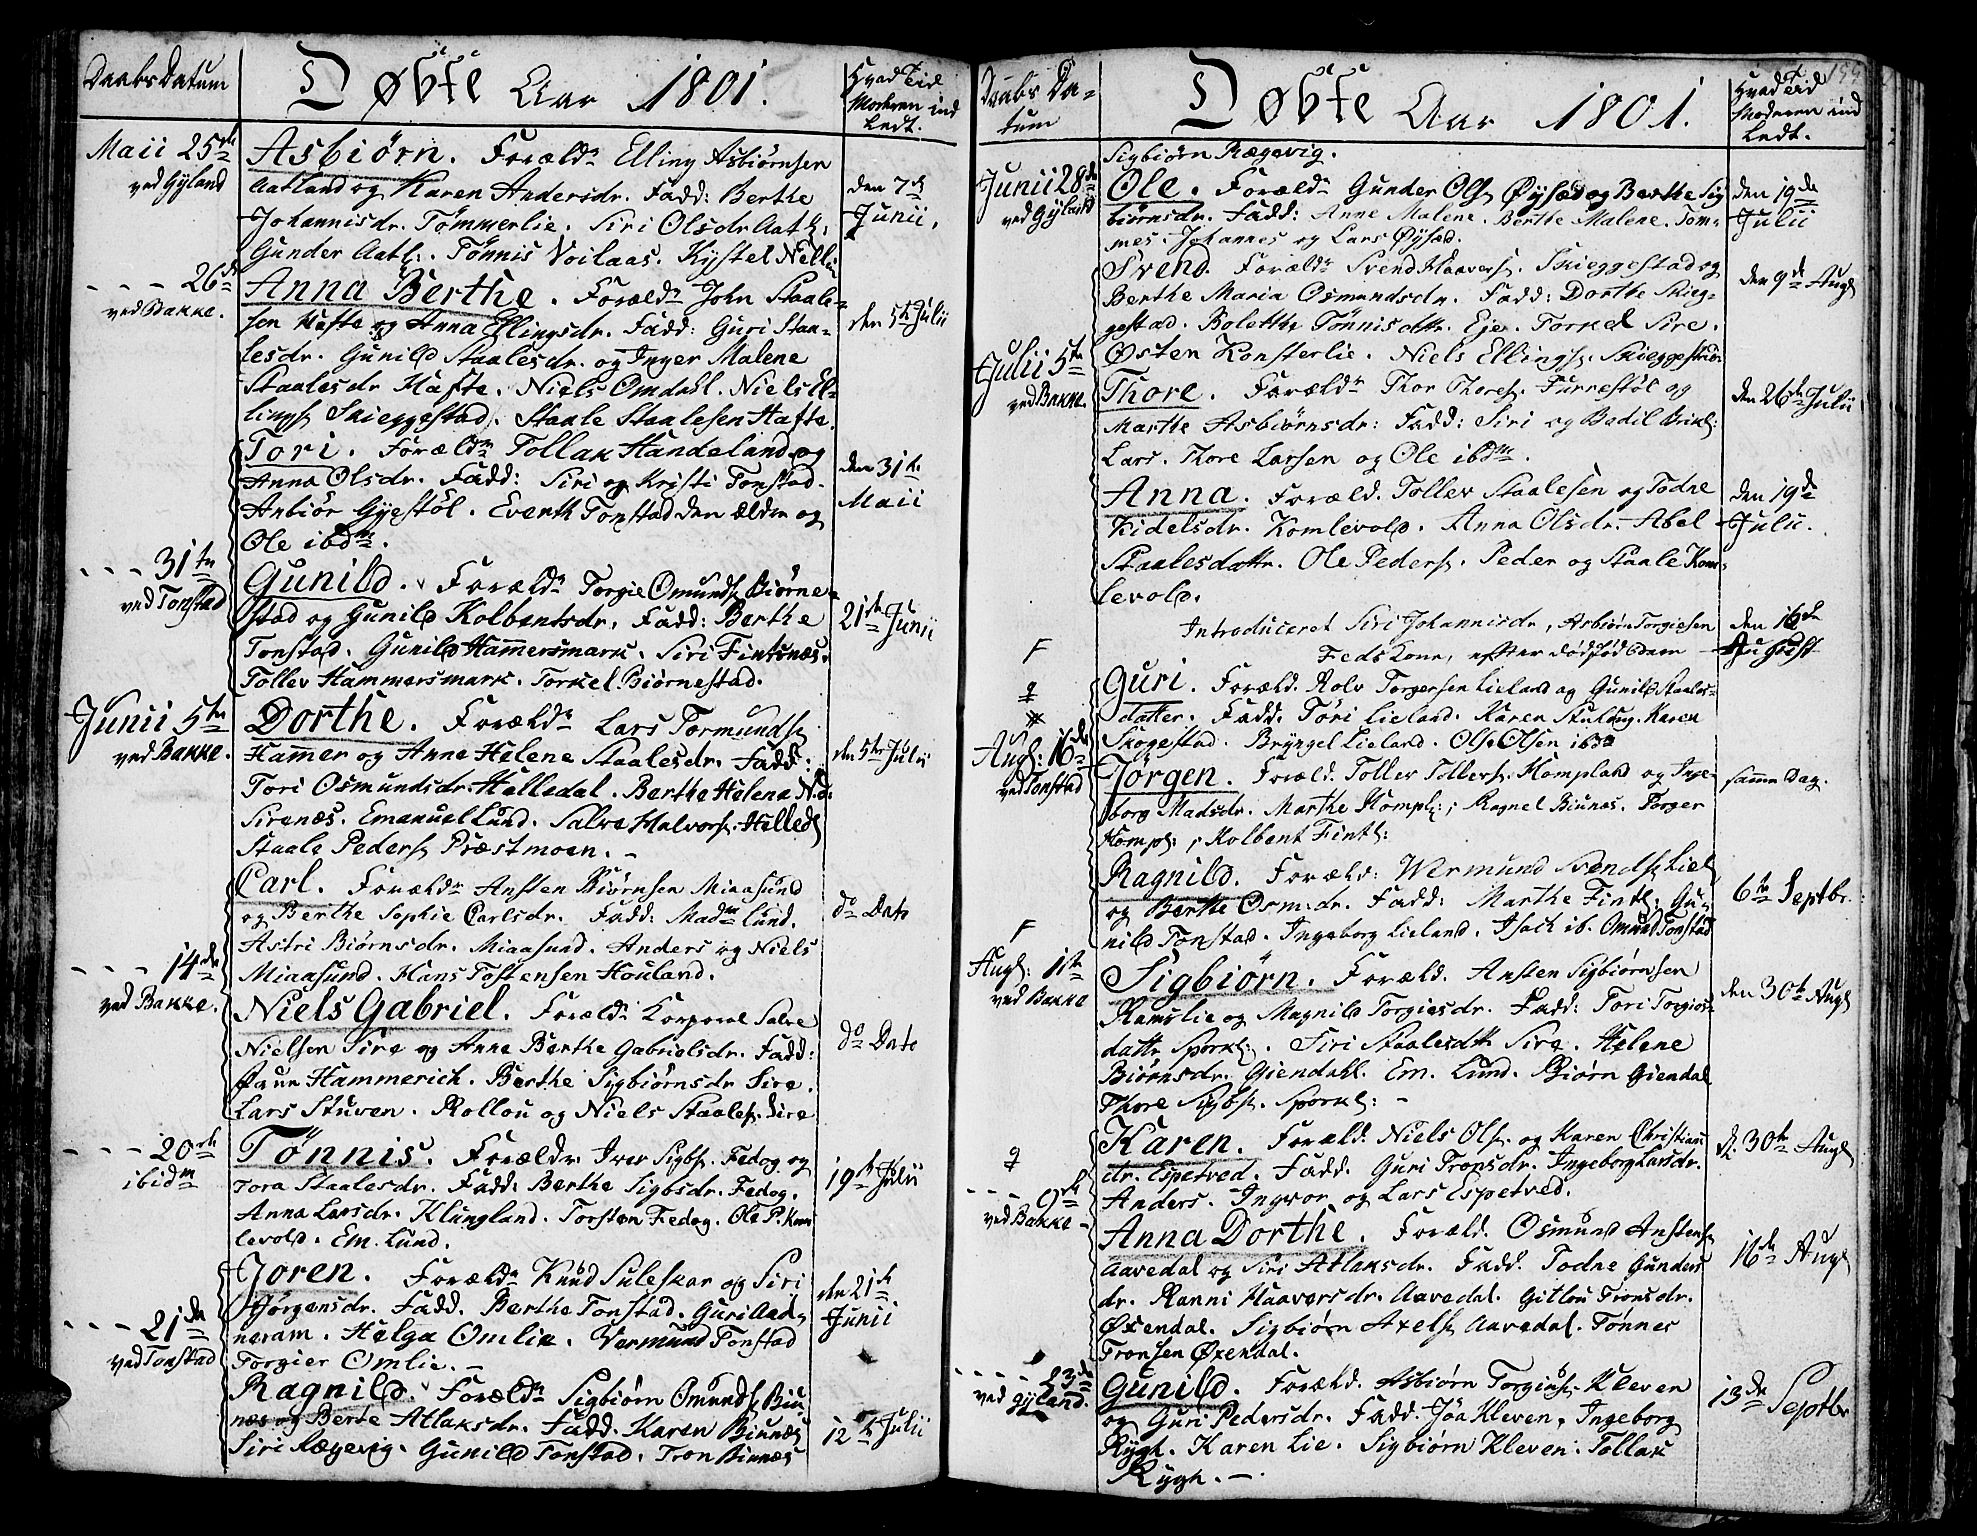 Daabs Datum
Døbte Aar 1801.
Hvad Tid
Moderen ind
ledt.
Maii 25de
ved Gyland
Asbiørn. Foræld: Elling Asbiørnsen
Aatland og Karen Andersdr. Fadd: Berthe
Johannisdr. Tømmerlie. Siri Olsdr Aatl:
Gunder Aatl:. Tønnis Voilaas. Kystel Nelli
den 7de
Junii.
- - - 26de
ved Bakke.
Anna Berthe. Foræld: John Staale-
sen Hafte og Anna Ellingsdr. Fadd: Guri Staa-
lesdr. Gunild Staalesdr. og Inger Malene
Staalesdr Hafte. Niels Omdahl. Niels El-
lings Skieggestad. Staale Staalesen Hafte.
den 5te Julii
Tori. Foræld: Tollak Handeland og
Anna Olsdr. Fadd: Siri og Kristi Tonstad.
Anbiør Gyestøl. Eventh Tonstad den ældre og
Ole ibdm.
den 31te
Maii
- - - 31te
ved Tonstad
Gunild. Foræld: Torgie Omunds Biørne-
stad og Gunild Kolbentsdr. Fadd: Berthe
Tonstad. Gunild Hammersmark. Siri Fintsnes.
Tollev Hammersmark. Torkel Biørnestad.
21de Junii
Junii 5te
ved Bakke.
Dorthe. Foræld: Lars Tormunds
Hammer og Anne Helene Staalesdr. Fadd:
Tori Osmundsdr. Helledal. Berthe Helena
Sirenæs. Emanuel Lund. Salve Halvors: Helleds
Staale Peders Præstmoen. -
den 5te Julii
Carl. Foræld: Ansten Biørnsen Miaasund
og Berthe Sophie Carlsdr. Fadd: Madm Lund.
Astri Biørnsdr. Miaasund. Anders og Niels
Miaasund. Hans Tostensen Houland.
do Dato
- - - 14de
ved Bakke.
Niels Gabriel. Foræld: Korporal Salve
Nielsen Sire og Anne Berthe Gabrielsdr. Fadd:
Hammerich. Berthe Sigbiørnsdr Sire.
Lars Stuven. Rollou og Niels Staales. Sire
do Dato
- - - 20de
ibidm
Tønnis. Foræld: Iver Sigbs. Fedog og
Tora Staalesdr. Fadd: Berthe Sigbsdr. Fedog.
Anna Larsdr. Klungland. Torsten Fedog. Ole P. Kom
levold. Em. Lund.
19de Julii
Joren. Foræld: Knud Suleskar og Siri
Jørgensdr. Fadd. Berthe Tonstad. Guri Aad-
neram. Helga Omlie. Vermund Tonstad
Torgier Omlie. -
den 21de
Junii
- - - 21de
ved Tonstad
Ragnild. Foræld: Sigbiørn Omunds Biu
næs og Berte Atlaksdr. Fadd. Karen Biunæs
Siri Rægevig. Gunild Tonstad. Tron Biunæs
12te Julii
Daabs Da-
tum
Døbte Aar 1801.
Hvad Tid
Moderen ind
ledt.
155
Sigbiørn Rægevig.
Junii 28de
ved Gyland
Ole. Foræld: Gunder Ols Øysæd og Berthe Sig
biørnsdr. Fadd: Anne Malene. Berthe Malene. Tom-
mes. Johannes og Lars Øysæd.
den 19de
Julii
Svend. Foræld: Svend Haavers. Skieggestad og
Berthe Maria Osmundsdr. Fadd: Dorthe Skieg-
gestad. Bolette Tønnisdtr. Eje. Torkel Sire.
Østen Konsterlie. Niels Ellings. Skieggestad.
den 9de Augs
Julii 5te
ved Bakke.
Thore. Foræld: Thor Thores. Furrestøl og
Marthe Asbiørnsdr: Fadd: Siri og Bodil Briks:
Lars. Thore Larsen og Ole ibdm.
den 26de Julii
Anna. Foræld. Tollev Staalesen og Todne
Kidelsdr. Komlevold. Anna Olsdr. Abel
Staalesdattr. Ole Peders. Peder og Staale Kom-
levold.
den 19de
Julii.
Introduceret Siri Johannisdr, Asbiørn Torgiesen
Feds Kone, efter dødfød Barn
den 16de
August
F
Guri. Foræld. Rolv Torgersen Lieland og Gunild Staales-
datter. Fadd. Tori Lieland. Karen Stulaug. Karen
Skogestad. Bryngel Lieland. Ole Olsen ibdm
Augs: 16de
ved Tonstad
Jørgen. Foræld. Tollev Tollevs. Hompland og Inge-
borg Madsdr. Marthe Hompl:, Ragnel Biunæs. Torger
Hompl:, Kolbent Fintl:
samme Dag.
Ragnild. Foræld: Wermund Svends Liel
og Berthe Osm:dr. Fadd: Marthe Fintl: Gu-
nild Tonstad. Ingeborg Lieland. Isach ib. Omund Tonstad
6te Septbr.
F
Augs: 11te
ved Bakke
Sigbiørn. Foræld. Ansten Sigbiørnsen
Ramslie og Magnild Torgiesdr. Fadd: Tori Torgies-
dattr Sporkl:. Siri Staalesdtr Sire. Helene
Biørnsdr. Giendahl. Em. Lund. Biørn Giendal
Thore Sigbs. Sporkl: -
den 30te Augs
Karen. Foræld. Niels Ols. og Karen Christians
dr. Espetved. Fadd. Guri Tronsdr. Ingeborg Larsdr.
Anders. Ingvor og Lars Espetved.
d. 30te Augs
- - - 9de
ved Bakke -
Anna Dorthe. Foræld. Osmund Anstens
Aavedal og Siri Atlaksdr. Fadd. Todne Gunders
dr. Ranni Haaversdr. Aavedal. Gitlou Tronsdr.
Øxendal. Sigbiørn Axels Aavedal. Tønnes
Tronsen Øxendal.
16de Augs
- - - 23de
ved Gyland.
Gunild. Foræld. Asbiørn Torgius. Kleven
og Guri Pedersdr. Fadd. Jøa Kleven, Ingeborg
Rygh. Karen Lie. Sigbiørn Kleven. Tollak
Rygh. -.
13de Septbr